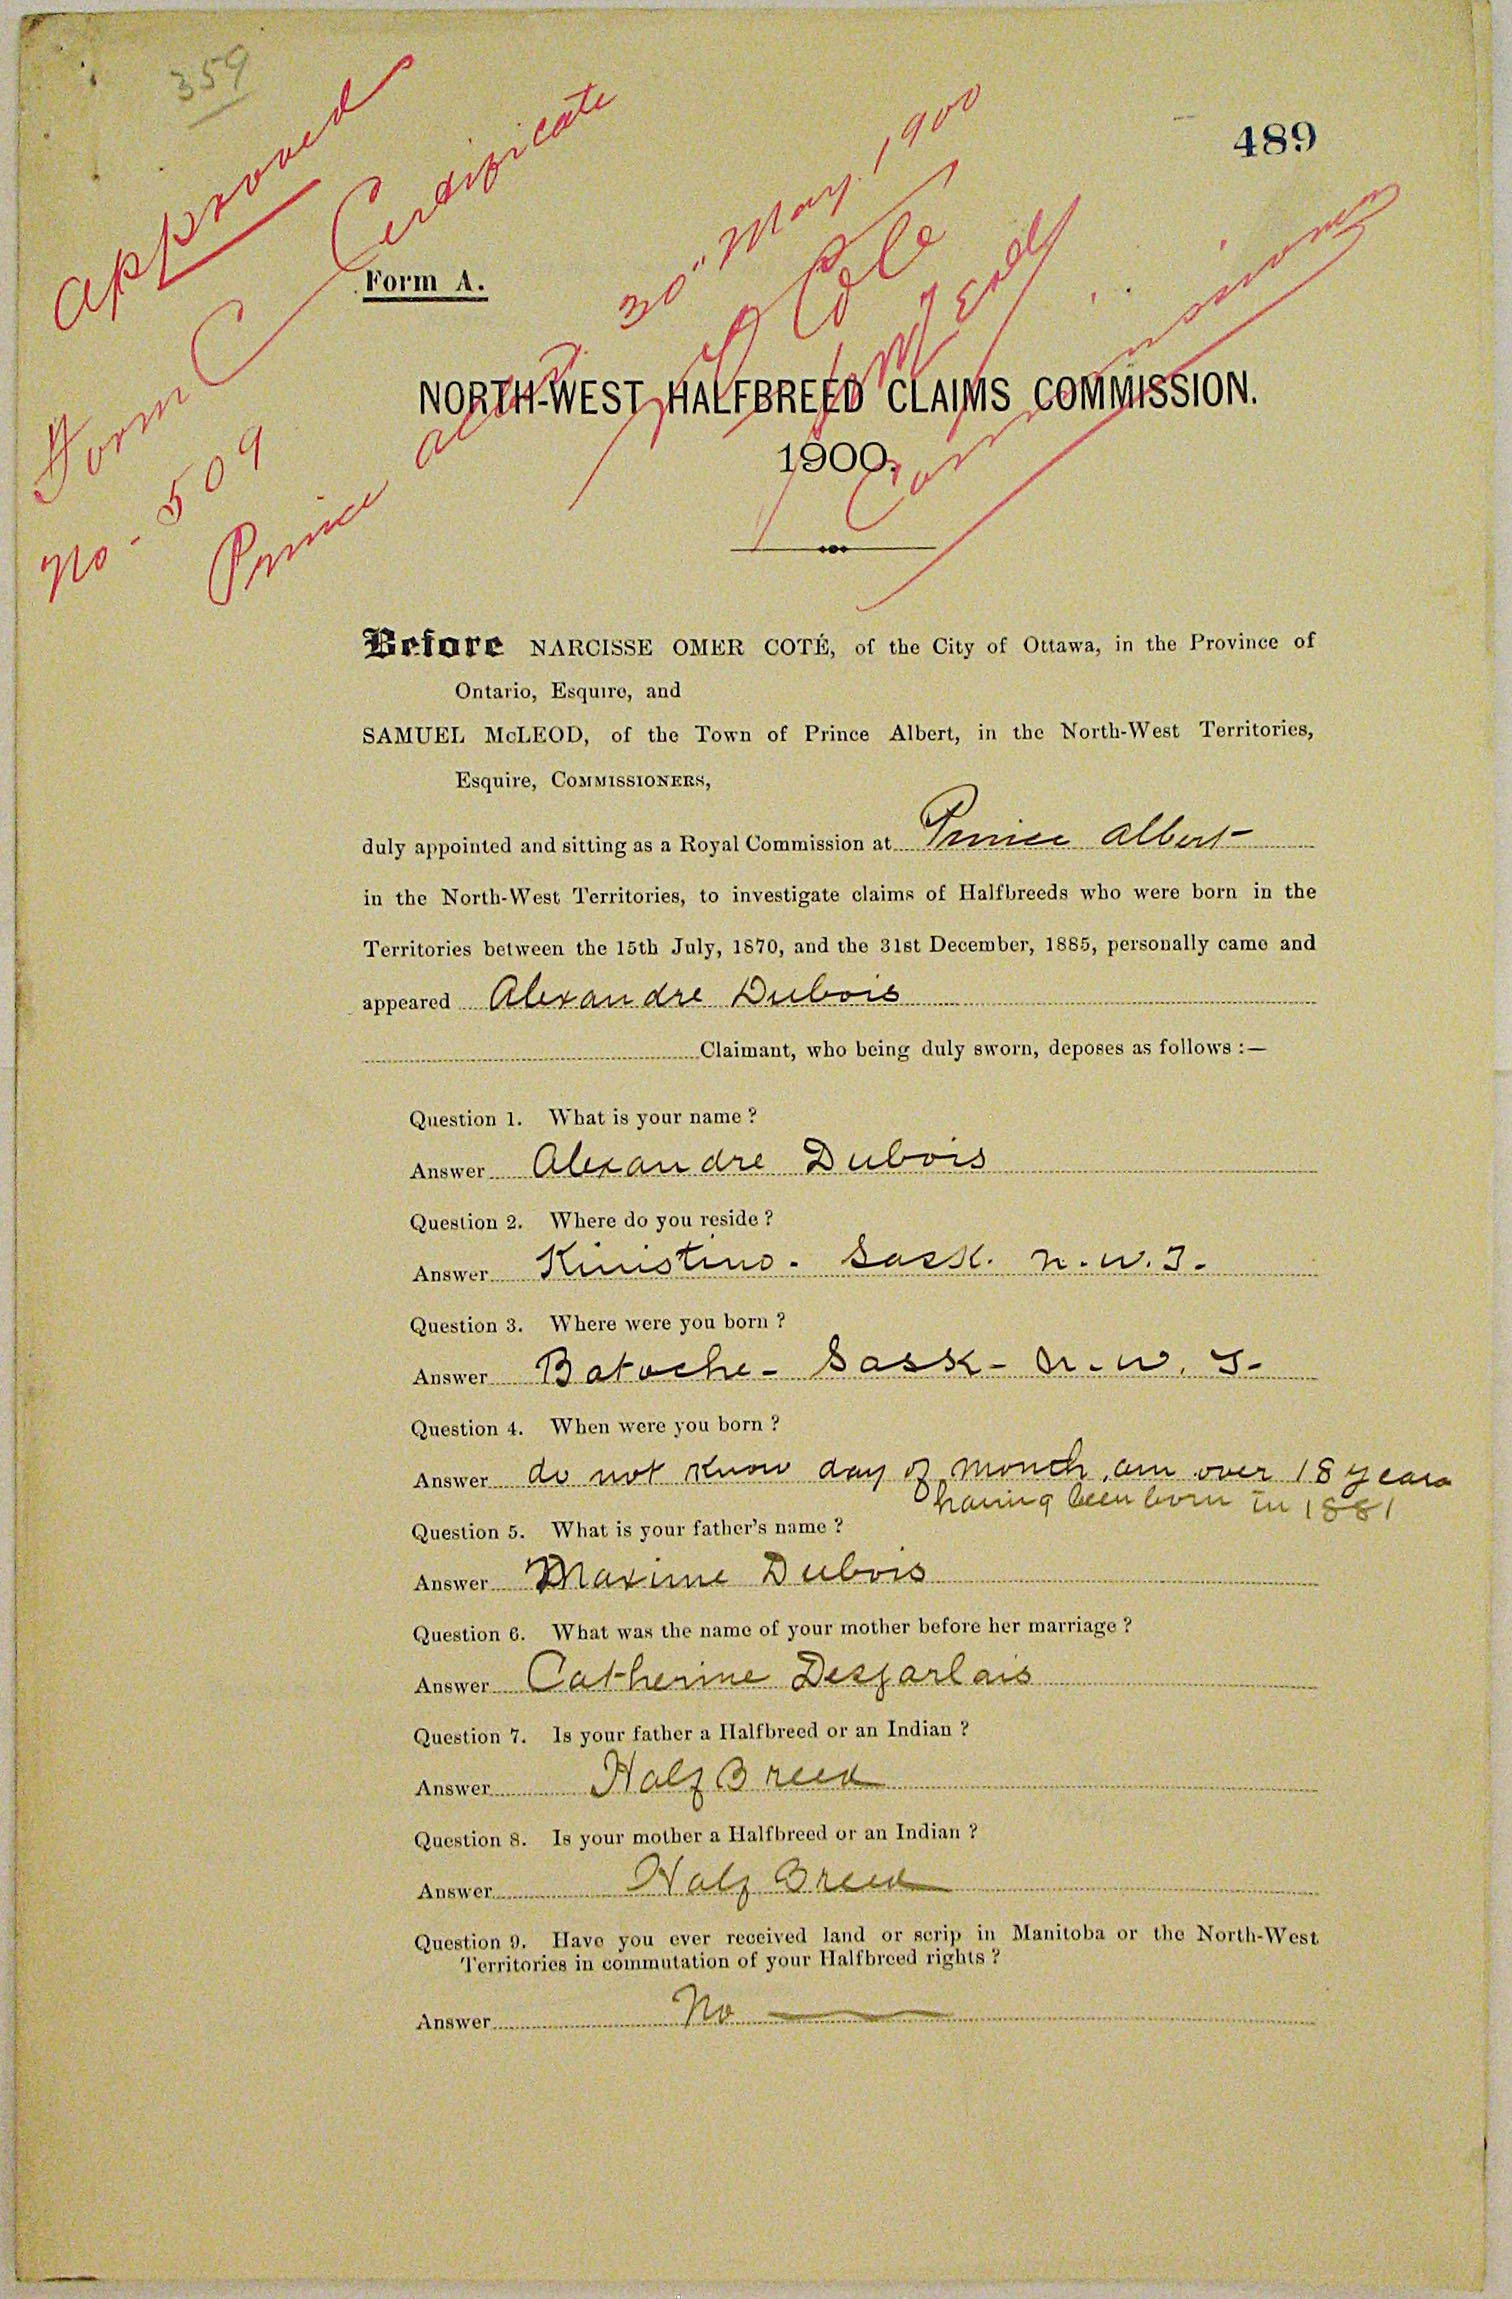 359
489
Approved
Form C Certificate
No. 509
Prince Albert 30" May 1900
N O Coté
Commissioners
Form A.
NORTH-WEST HALFBREED CLAIMS COMMISSION.
1900.
Before NARCISSE OMER COTÉ, of the City of Ottawa, in the Province of
Ontario, Esquire, and
SAMUEL McLEOD, of the Town of Prince Albert, in the North-West Territories,
Esquire, COMMISSIONERS,
duly appointed and sitting as a Royal Commission at Prince Albert
in the North-West Territories, to investigate claims of Halfbreeds who were born in the
Territories between the 15th July, 1870, and the 31st December, 1885, personally came and
appeared Alexandre Dubois
Claimant, who being duly sworn, deposes as follows :—
Question 1. What is your name ?
Answer Alexandre Dubois
Question 2. Where do you reside ?
Answer Kinistino - Sask. N.W.T.
Question 3. Where were you born ?
Answer Batoche - Sask - N.W.T-
Question 4. When were you born ?
Answer do not know day of month, am over 18 years
having been born in 1881
Question 5. What is your father's name ?
Answer Maxime Dubois
Question 6. What was the name of your mother before her marriage ?
Answer Catherine Desjarlais
Question 7. Is your father a Halfbreed or an Indian ?
Answer Half Breed
Question 8. Is your mother a Halfbreed or an Indian ?
Answer Half Breed
Question 9. Have you ever received land or scrip in Manitoba or the North-West
Territories in commutation of your Halfbreed rights ?
Answer No